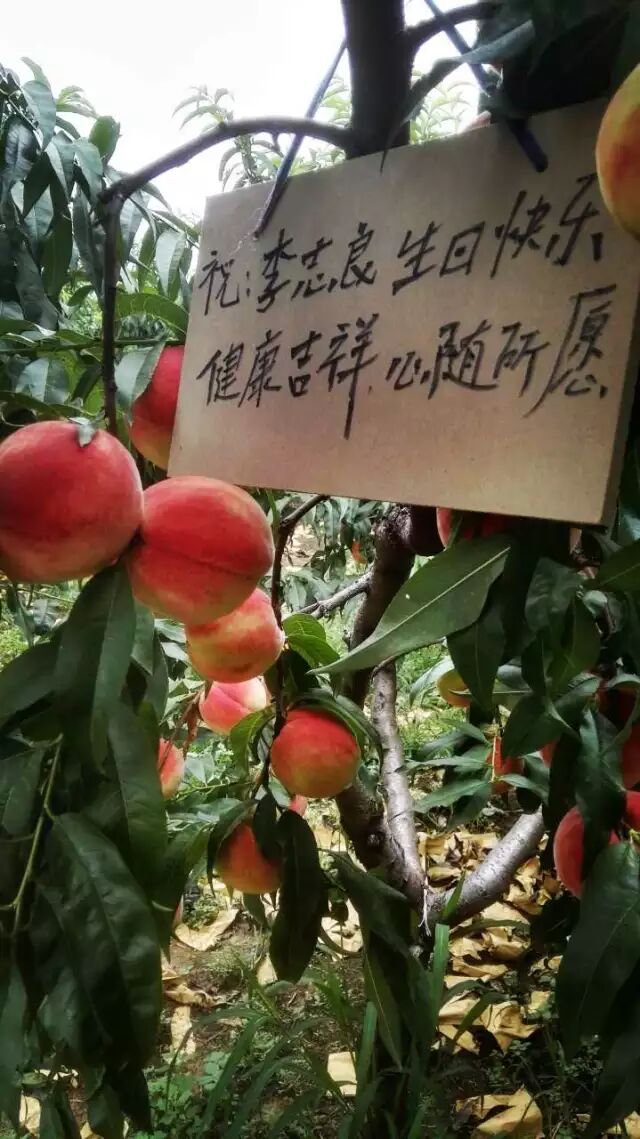 祝:李志良生日快乐
健康吉祥.心随所愿